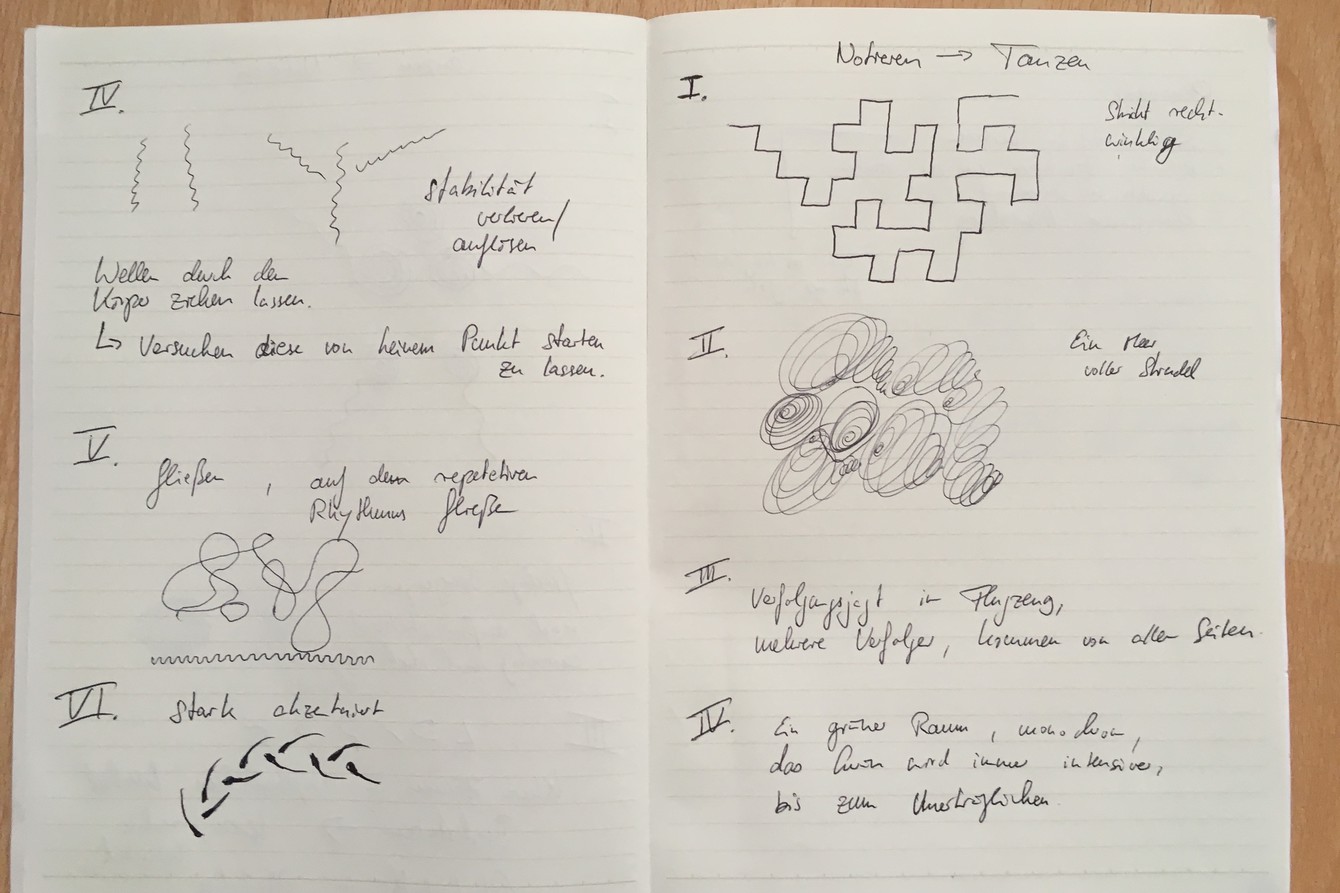 IV.
Stabilität
verlieren/
auflösen
Wellen durch den
Körper ziehen lassen.
↳ Versuchen diese von keinem Punkt starten
zu lassen.
V.
fließen, auf dem repetetiven
Rhythmus fließen
VI. stark akzentuiert
Notieren → Tanzen
I.
Strikt recht-
winklig
II.
Ein Meer
voller Strudel
III.
Verfolgungsjagt im Flugzeug,
mehrere Verfolger, kommen von allen Seiten.
IV. Ein grüner Raum, monochrom,
das Grün wird immer intensiver,
bis zum Unerträglichen.